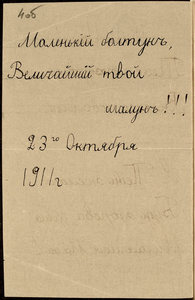 406
Маленькій болтунъ,
Величайшій твой
шалунъ!!!
23го Октября
1911г